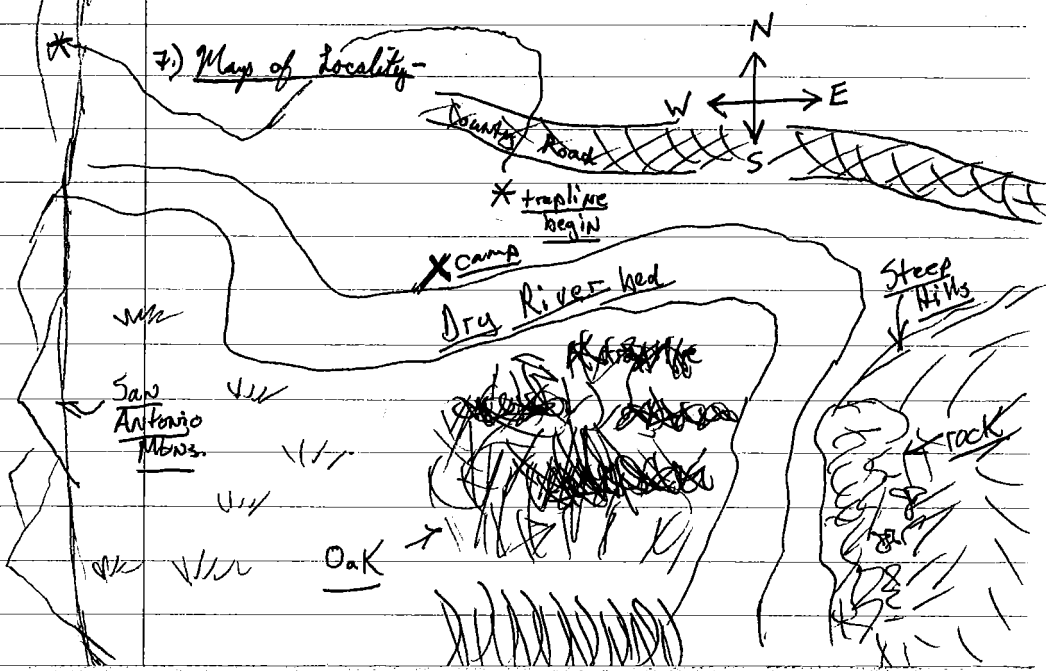 7.) Maps of Locality-
N
W E
S
County Road
* trapline
begin
X camp
Dry River bed
Steep
Hills
San
Antonio
Mtns.
rock
Oak